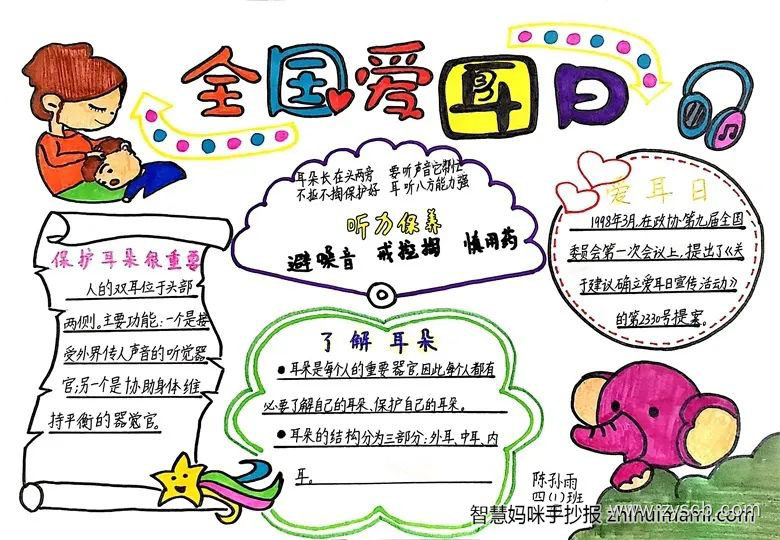 全国爱耳日
3.3
耳朵长在头两旁 要听声音它帮忙
不扯不掏保护好 耳听八方能力强
听力保养
避噪音 戒挖掏 慎用药
爱耳日
1998年3月，在政协第九届全国
委员会第一次会议上，提出了《关
于建议确立爱耳日宣传活动》
的第2330号提案。
保护耳朵很重要
人的双耳位于头部
两侧。主要功能：一个是接
受外界传人声音的听觉器
官；另一个是协助身体维
持平衡的器觉官。
了解耳朵
●耳朵是每个人的重要器官，因此，每个人都有
必要了解自己的耳朵、保护自己的耳朵。
●耳朵的结构分为三部分：外耳、中耳、内
耳。
陈孙雨
四(1)班
智慧妈咪手抄报 zhihuimami.com